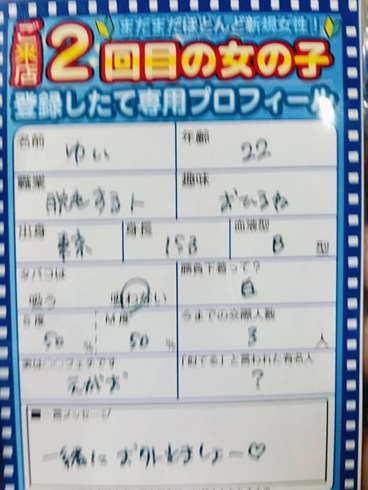 まだまだほとんど新規女性!
ご来店2回目の女の子
登録したて専用プロフィール
名前 ゆい
年齢 22
職業 脱毛する人
趣味 おひるね
出身 東京
身長 153
血液型 B 型
タバコは 吸う 吸わない
勝負下着って? 白
S度 50 %
M度 50 %
今までの交際人数 3 人
実は○○フェチです えがお
「似てる」と言われた有名人 ?
■一言メッセージ
一緒に